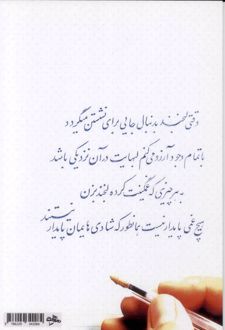 وقتی لبخند بدنبال جایی برای نشستن میگردد
با تمام وجود آرزو می کنم لبهایت در آن نزدیکی باشد
به هر چیزی که غمگینت کرده لبخند بزن
هیچ غمی پایدار نیست همانطور که شادی هایمان پایدار نیستند